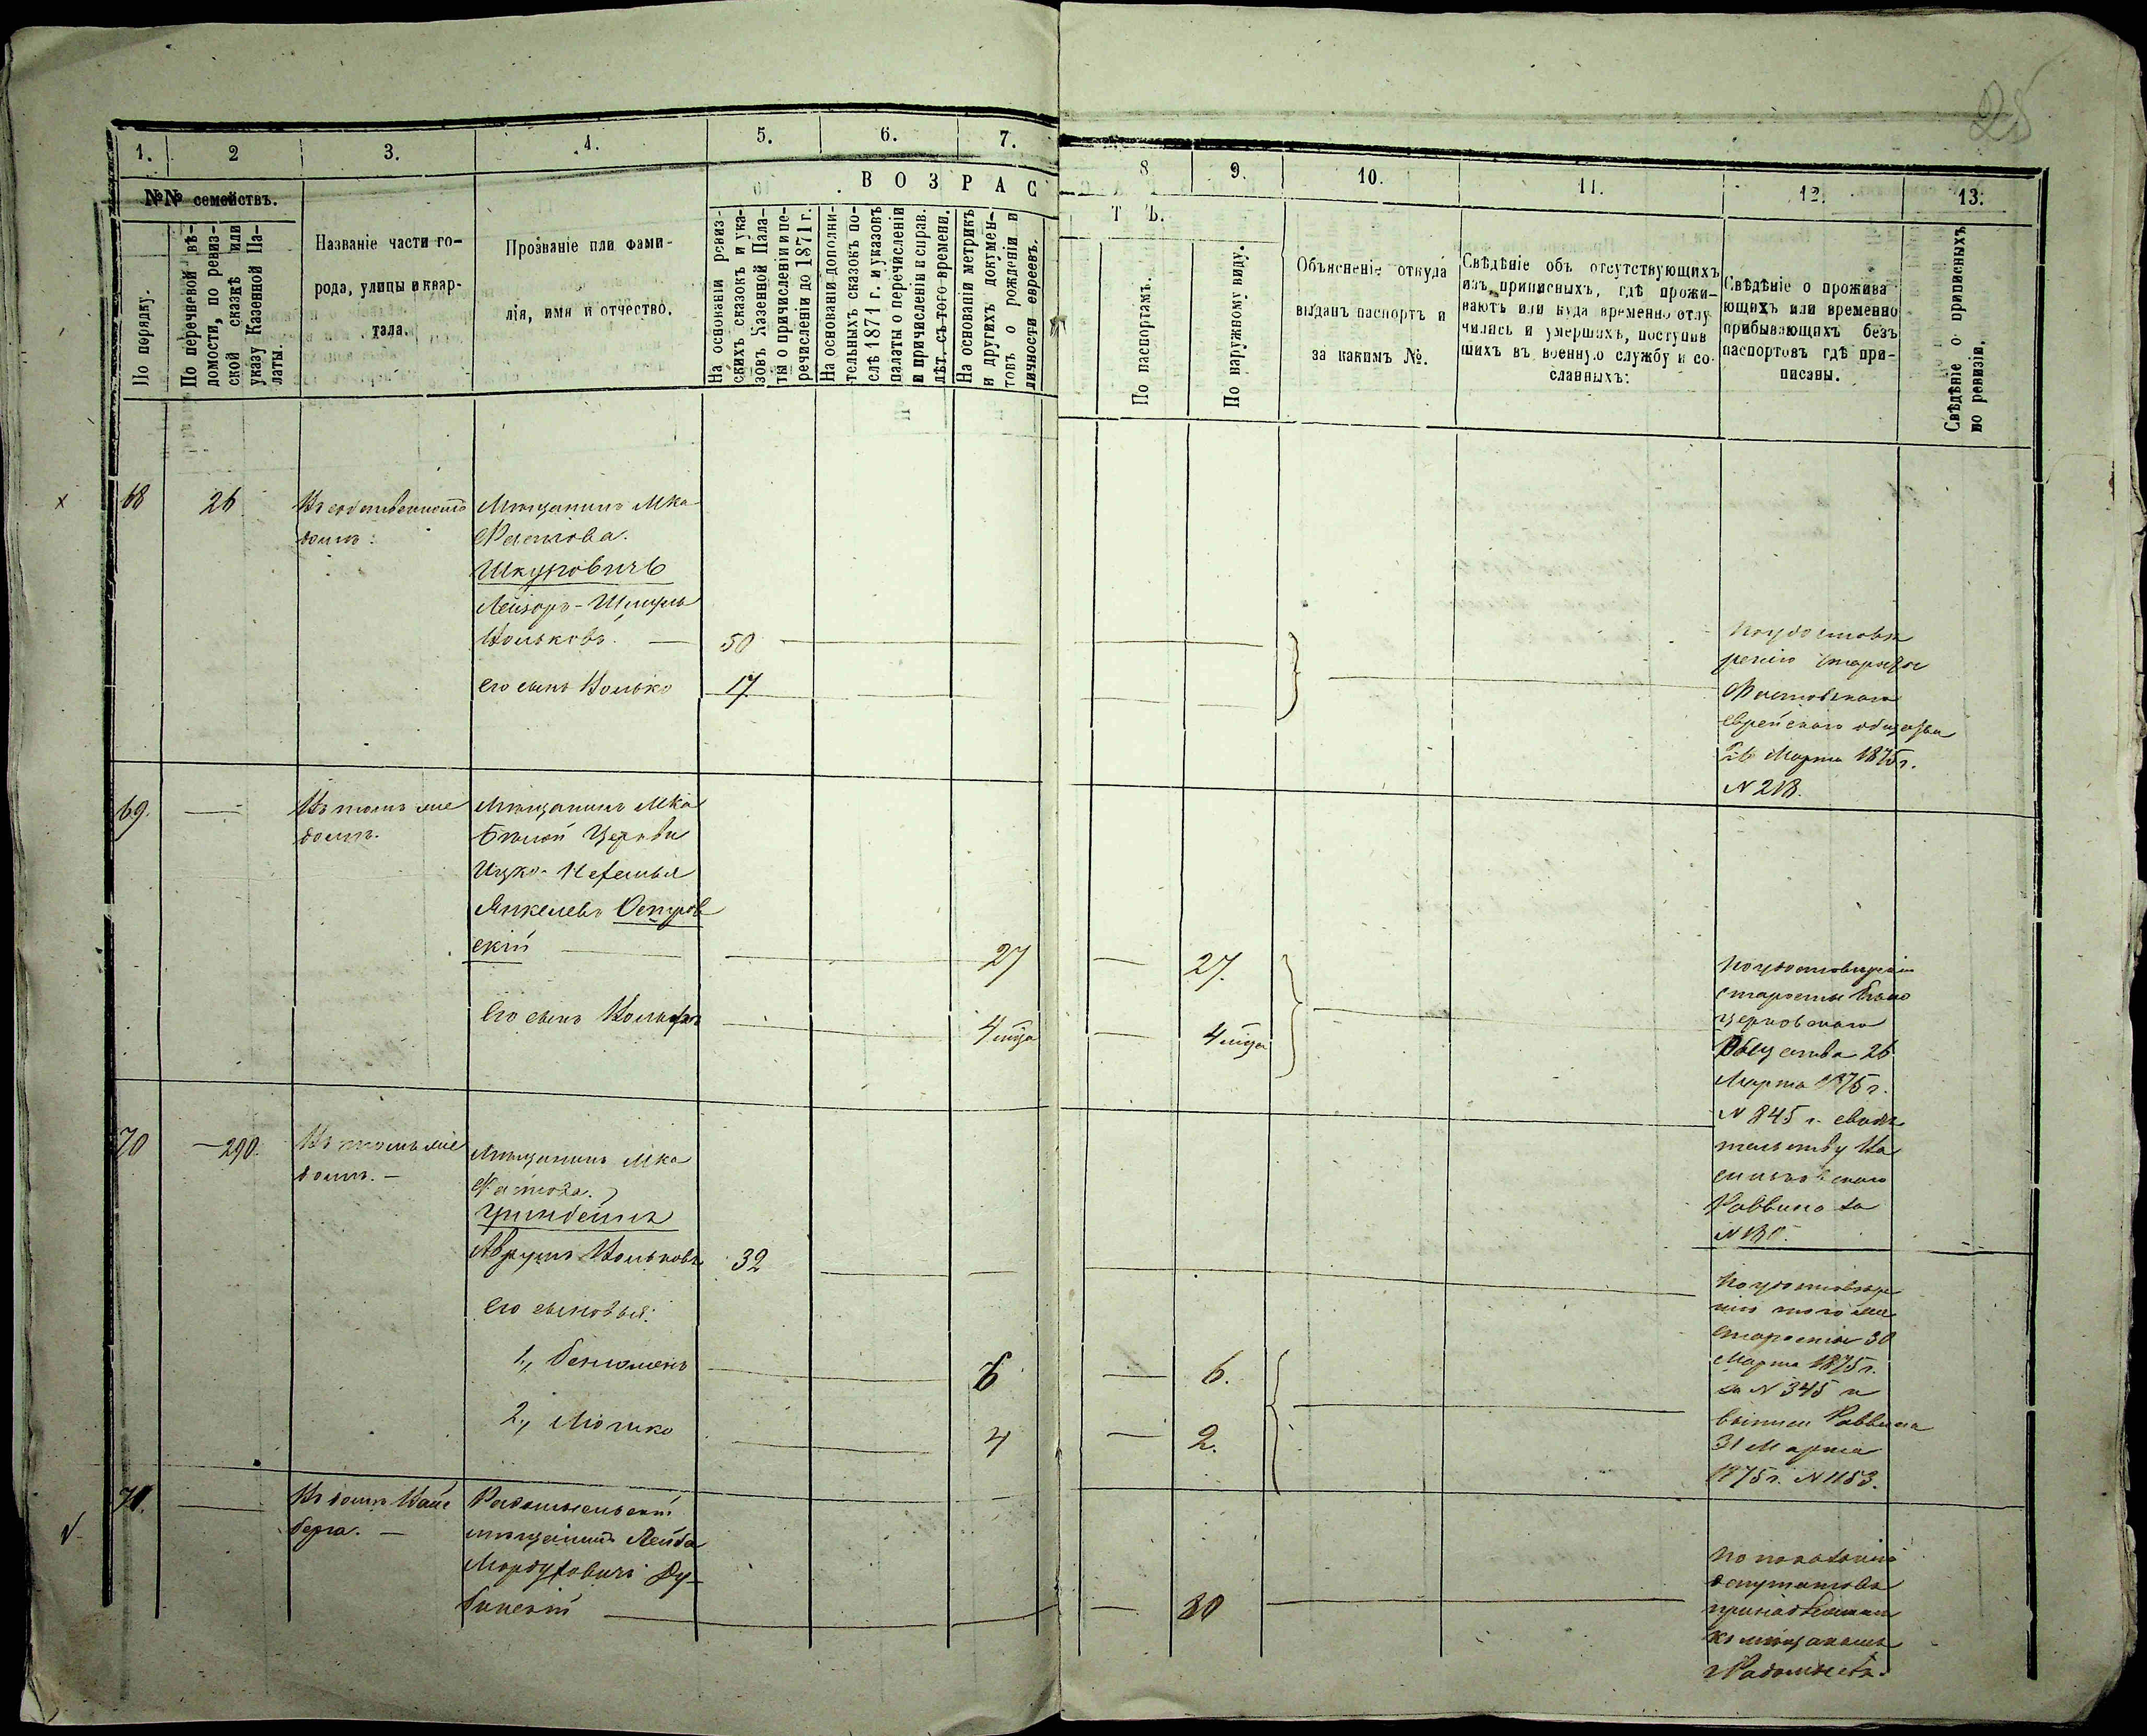 25
1.
2
3.
4.
5.
6.
7.
8
9.
10.
11.
12.
13.
№№ семействъ.
ВОЗРАСТЪ.
По порядку.
По перечневой вѣ-
домости, по ревиз-
ской сказкѣ или
указу Казенной Па-
латы
Названіе части го-
рода, улицы и квар-
тала.
Прозваніе или фами-
лія, имя и отчество.
На основаніи ревиз-
скихъ сказокъ и ука-
зовъ Казенной Пала-
ты о причисленіи и пе-
речисленіи до 1871 г.
На основаніи дополни-
тельныхъ сказокъ по-
слѣ 1871 г. и указовъ
палаты о перечисленіи
и причисленіи и справ.
лѣт. съ того времени.
На основаніи метрикъ
и другихъ докумен-
товъ о рожденіи и
личности евреевъ.
По паспортамъ.
По наружному виду.
Объясненіе откуда
выданъ паспортъ и
за какимъ №.
Свѣдѣніе объ отсутствующихъ
изъ приписныхъ, гдѣ прожи-
ваютъ или куда временно отлу-
чились и умершихъ, поступив
шихъ въ военную службу и со-
сланныхъ:
Свѣдѣніе о прожива
ющихъ или временно
прибывающихъ безъ
паспортовъ гдѣ при-
писаны.
Свѣдѣніе о приписныхъ
по ревизіи.
68
26
Въ собственномъ
домѣ.
Мѣщанинъ Мка
Фастова.
Шкуровичъ
Лейзоръ-Шмуль
Вольковъ. 50
Его сынъ Волько 17
По удостовѣ
ренію старосты
Фастовскаго
еврейскаго общества
26 Марта 1875 г.
N 218.
69.
Въ томъ же
домѣ.
Мѣщанинъ Мка
Бѣлой Церкви
Ицко-
Янкелевъ Остров
скій 27 27.
Его сынъ 4 мца 4 мца
По удостовѣренію
старосты Бѣло
церковскаго
Общества 26
Марта 1875 г.
N 845 и свидѣ
тельству Ва
сильковскаго
Раввина за
70
290.
Въ томъ же
домѣ.
Мѣщанинъ Мка
Фастова.
Гринбейнъ
Аврумъ Вольковъ 32
Его сыновья:
1., Беньюменъ 6 6.
2., Мошко 4 2.
По удостовѣре
нію того же
старосты 30
Марта 1875 г.
за N 345 и
выписи Раввина
31 Марта
1875 г. N 1153.
71.
Въ домѣ Вайс
берга.
Радомысльскій
мѣщанинъ Лейба
Мордуховичъ Ду-
бинскій 20
По показанію
депутатовъ
принадлежитъ
къ мѣщанамъ
г. Радомысля.